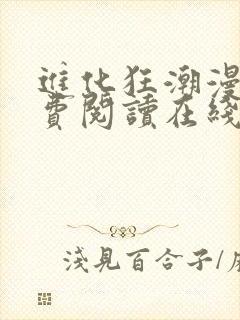 進化狂潮漫
費閱讀在綫
淺見百合子/